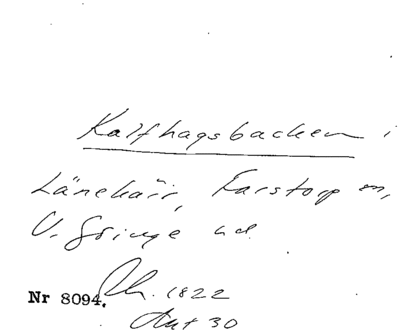 Kalfhagsbacken i
Länehär, Farstorp sn,
V. Göinge hd.
Nr 8094. 1822
Akt 30